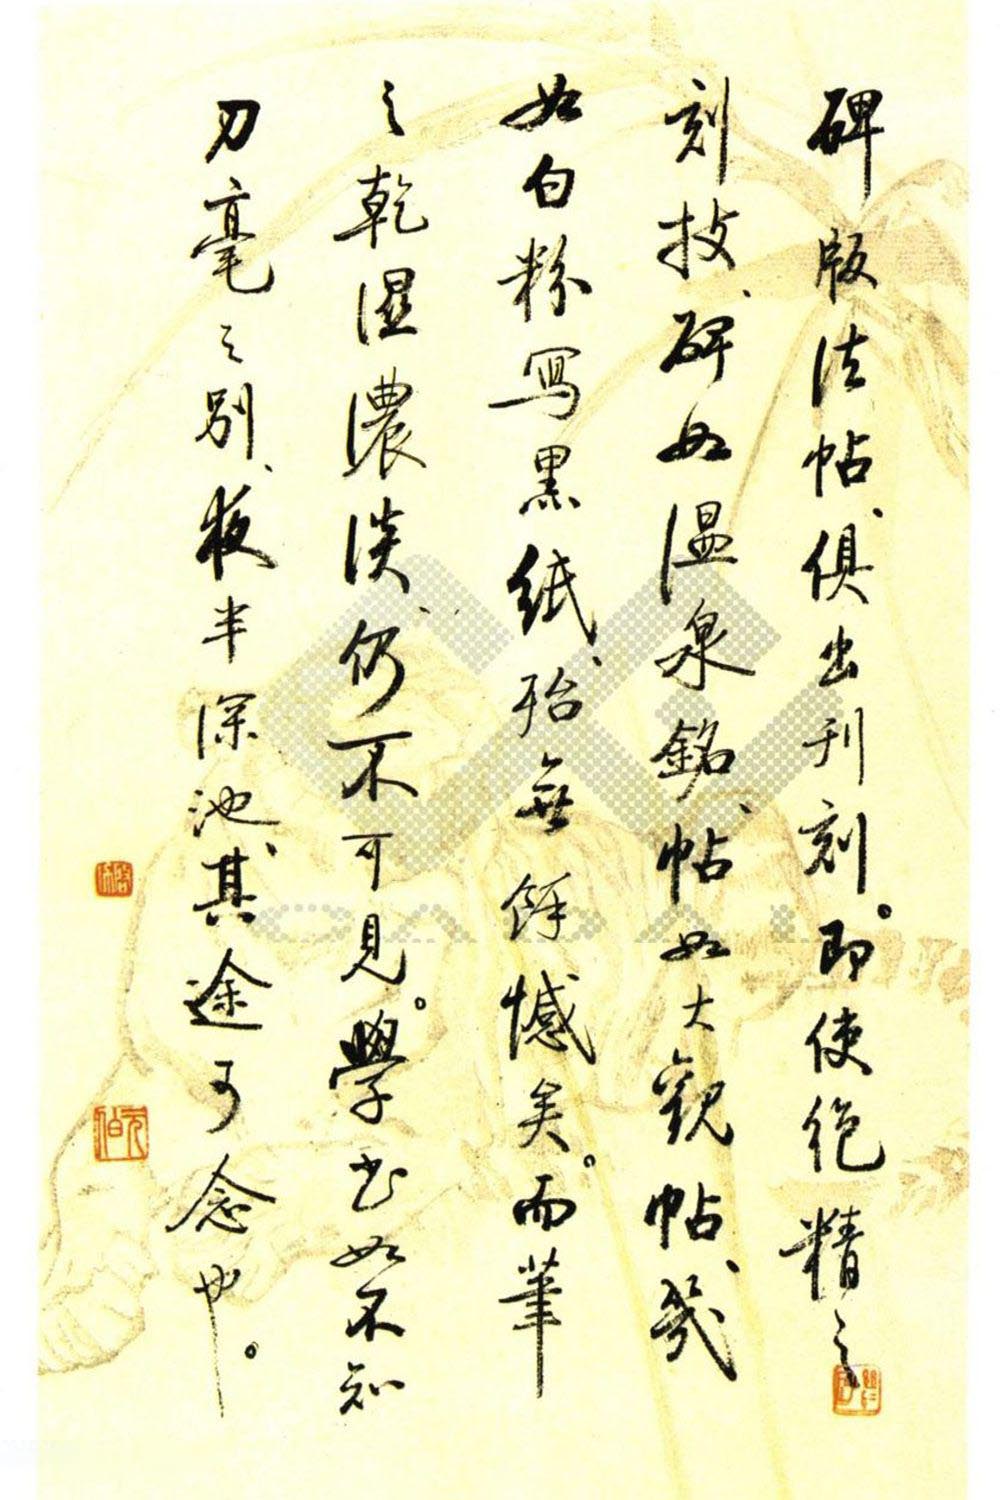 碑版法帖、俱出刊刻。即使絕精之
刻技、碑如溫泉銘、帖如大觀帖、幾
如白粉寫黑紙、殆無餘憾矣。而筆
之乾濕濃淡、仍不可見。學書如不知
刀毫之別、夜半深池、其途可念也。
啓功
元伯